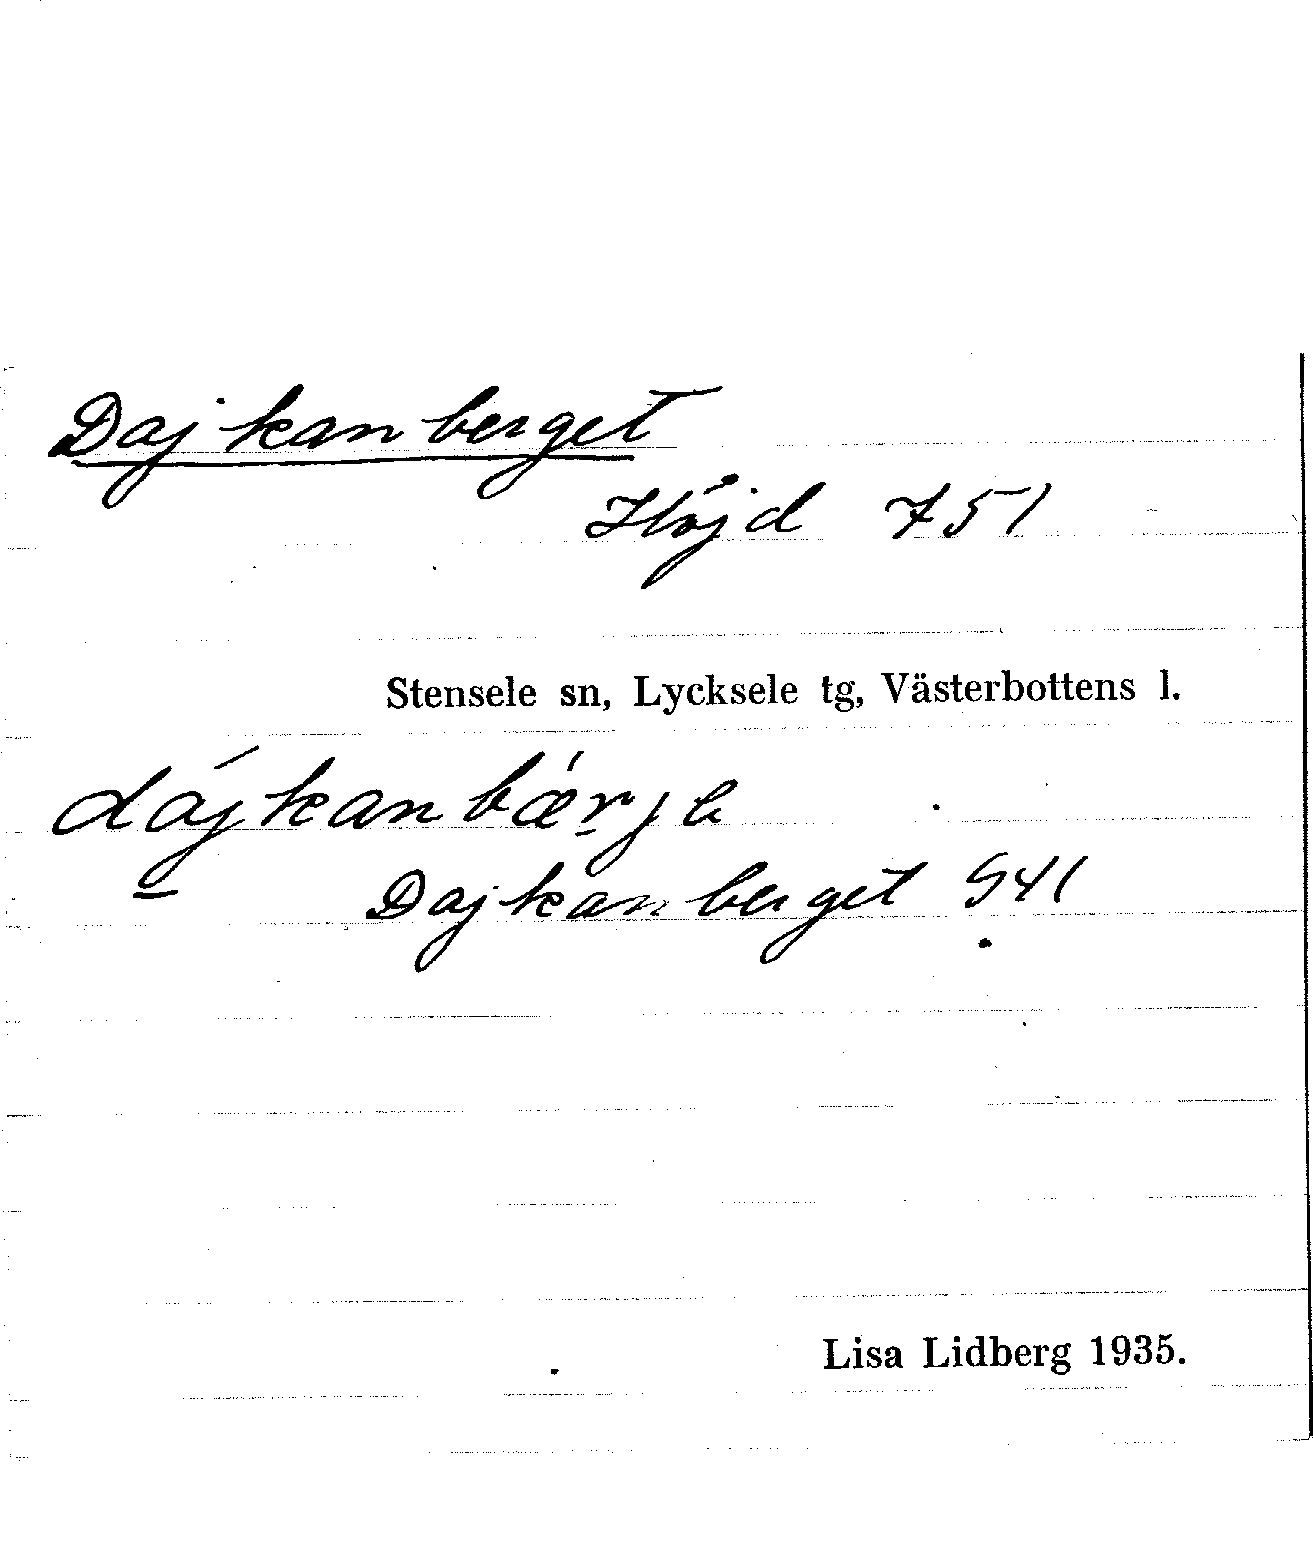 Dajkanberget
Höjd 751
Stensele sn, Lycksele tg, Västerbottens l.
dájkanbǽrje
Dajkanberget S41
Lisa Lidberg 1935.